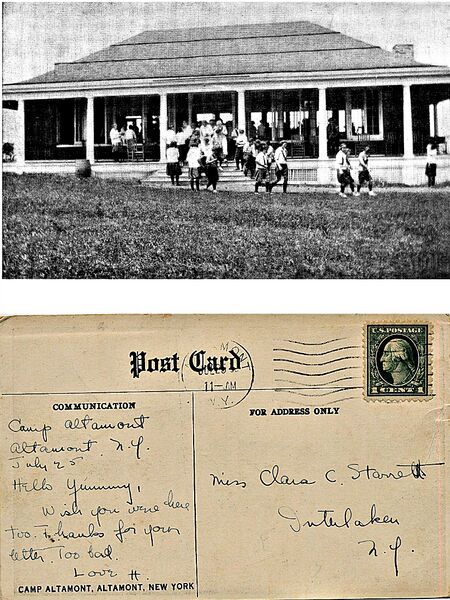 Post Card
MONT
11-AM
N.Y.
U.S. POSTAGE
1 CENT 1
COMMUNICATION
FOR ADDRESS ONLY
Camp Altamont
Altamont, N.Y.
July 25
Hello Yummy,
Wish you were here
too. Thanks for your
letter. Too bad.
Love H
Miss Clara C. Starrett
Interlaken
N.Y.
CAMP ALTAMONT, ALTAMONT, NEW YORK